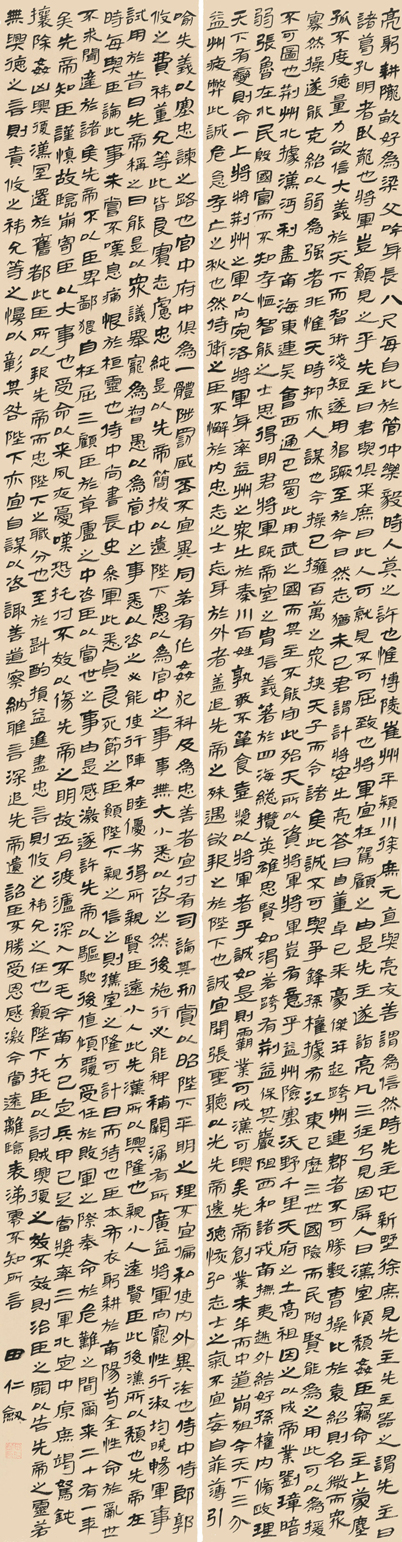 亮躬耕隴畝好為梁父吟身長八尺每自比於管仲樂毅時人莫之許也惟博陵崔州平穎川徐庶元直與亮友善謂為信然時先主屯新野徐庶見先主先主器之謂先主曰
諸葛孔明者臥龍也將軍豈願見之乎先主曰君與俱來庶曰此人可就見不可屈致也將軍宜枉駕顧之由是先主遂詣亮凡三往乃見因屏人曰漢室傾頹姦臣竊命主上蒙塵
孤不度德量力欲信大義於天下而智術淺短遂用猖蹶至於今日然志猶未已君謂計將安出亮答曰自董卓已來豪傑并起跨州連郡者不可勝數曹操比於袁紹則名微而眾
寡然操遂能克紹以弱為強者非惟天時抑亦人謀也今操已擁百萬之眾挾天子而令諸侯此誠不可與爭鋒孫權據有江東已歷三世國險而民附賢能為之用此可以為援
不可圖也荊州北據漢沔利盡南海東連吳會西通巴蜀此用武之國而其主不能守此殆天所以資將軍將軍豈有意乎益州險塞沃野千里天府之土高祖因之以成帝業劉璋暗
弱張魯在北民殷國富而不知存恤智能之士思得明君將軍既帝室之胄信義著於四海總攬英雄思賢如渴若跨有荊益保其巖阻西和諸戎南撫夷越外結好孫權內脩政理
天下有變則命一上將將荊州之軍以向宛洛將軍身率益州之眾出於秦川百姓孰敢不簞食壺漿以將軍者乎誠如是則霸業可成漢可興矣先帝創業未半而中道崩殂今天下三分
益州疲弊此誠危急存亡之秋也然侍衛之臣不懈於內忠志之士忘身於外者蓋追先帝之殊遇欲報之於陛下也誠宜開張聖聽以光先帝遺德恢弘志士之氣不宜妄自菲薄引
喻失義以塞忠諫之路也宮中府中俱為一體陟罰臧否不宜異同若有作姦犯科及為忠善者宜付有司論其刑賞以昭陛下平明之理不宜偏私使內外異法也侍中侍郎郭
攸之費禕董允等此皆良實志慮忠純是以先帝簡拔以遺陛下愚以為宮中之事事無大小悉以咨之然後施行必能裨補闕漏有所廣益將軍向寵性行淑均曉暢軍事
試用於昔日先帝稱之曰能是以眾議舉寵為督愚以為營中之事悉以咨之必能使行陣和睦優劣得所親賢臣遠小人此先漢所以興隆也親小人遠賢臣此後漢所以頹也先帝在
時每與臣論此事未嘗不嘆息痛恨於桓靈也侍中尚書長史參軍此悉貞良死節之臣願陛下親之信之則漢室之隆可計日而待也臣本布衣躬耕於南陽苟全性命於亂世
不求聞達於諸侯先帝不以臣卑鄙猥自枉屈三顧臣於草廬之中咨臣以當世之事由是感激遂許先帝以驅馳後值傾覆受任於敗軍之際奉命於危難之間爾來二十有一年
矣先帝知臣謹慎故臨崩寄臣以大事也受命以來夙夜憂嘆恐托付不效以傷先帝之明故五月渡瀘深入不毛今南方已定兵甲已足當獎率三軍北定中原庶竭駑鈍
攘除姦凶興復漢室還於舊都此臣所以報先帝而忠陛下之職分也至於斟酌損益進盡忠言則攸之禕允之任也願陛下托臣以討賊興復之效不效則治臣之罪以告先帝之靈若
無興德之言則責攸之禕允等之慢以彰其咎陛下亦宜自謀以咨諏善道察納雅言深追先帝遺詔臣不勝受恩感激今當遠離臨表涕零不知所言 田仁劍